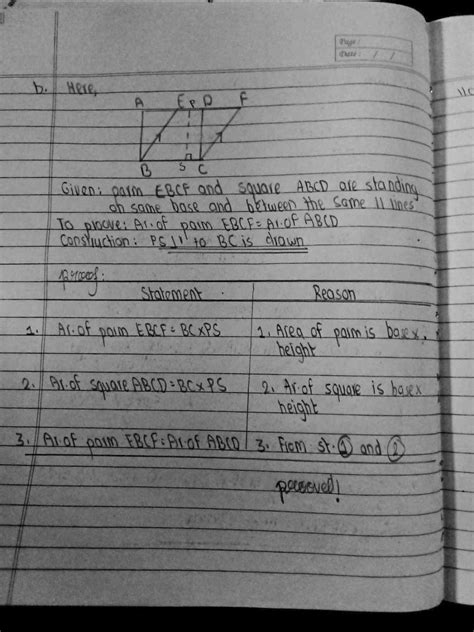 Page:
Date: / /
b. Here,
A E P D F
B S C
Given: parm EBCF and square ABCD are standing
on same base and between the same || lines
To prove: Ar. of parm EBCF = Ar. of ABCD
Construction: PS || to BC is drawn
proof:
Statement Reason
1. Ar. of parm EBCF = BC×PS 1. Area of parm is base×
height
2. Ar. of square ABCD = BC×PS 2. Ar. of square is base×
height
3. Ar. of parm EBCF = Ar. of ABCD 3. From st. ① and ②
proved!